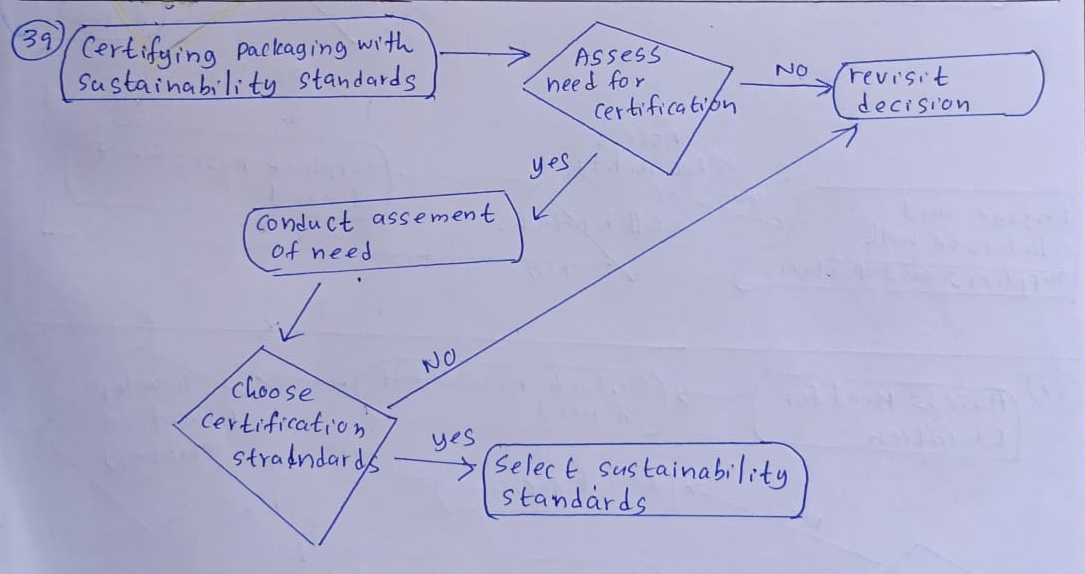 39
Certifying packaging with
sustainability standards
Assess
need for
certification
NO
revisit
decision
yes
conduct assement
of need
NO
choose
certification
stradndards
yes
Select sustainability
standards